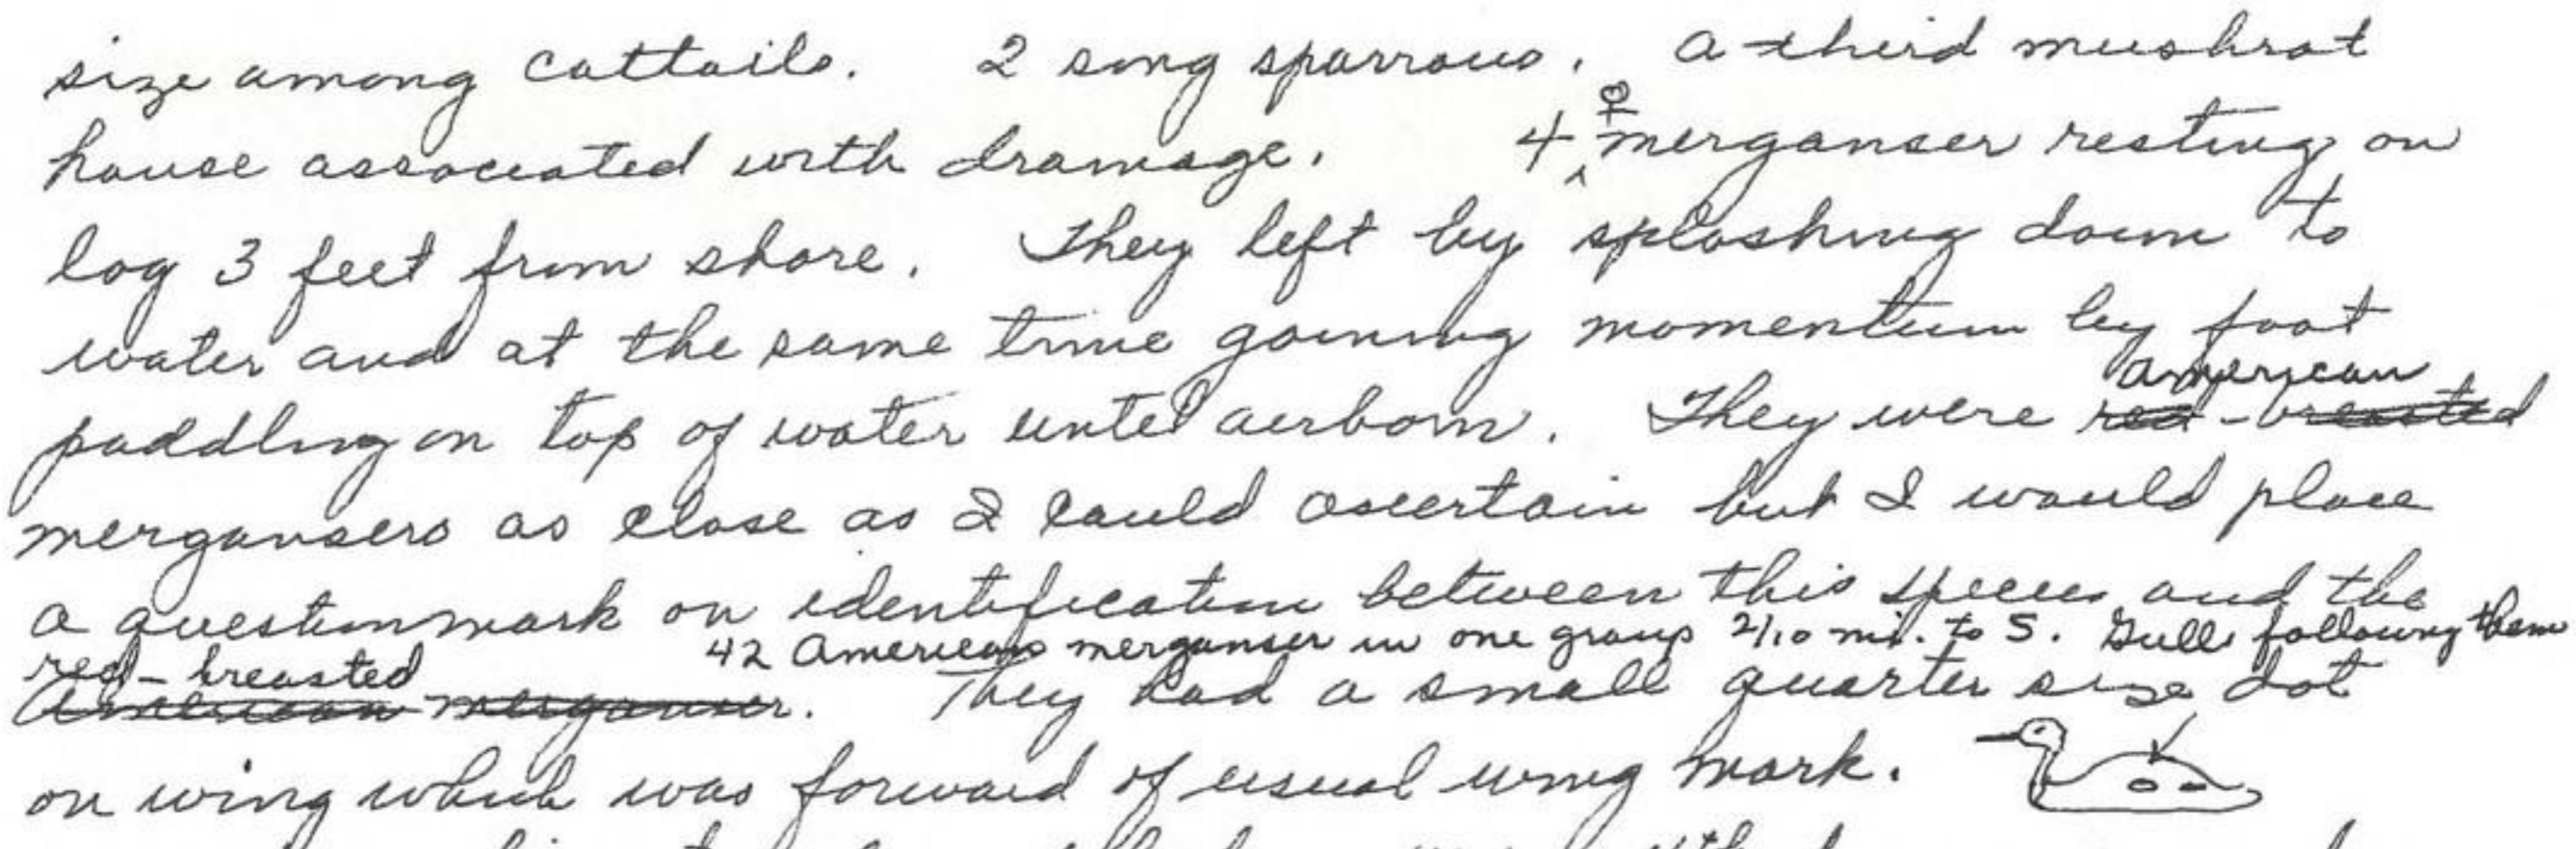 size among cattails. 2 song sparrows. A third muskrat
house associated with drainage. 4 ♀ merganser resting on
log 3 feet from shore. They left by splashing down to
water and at the same time gaining momentum by foot
american
paddling on top of water until airborn. They were red-breasted
mergansers as close as I could ascertain but I would place
a question mark on identification between this species and the
42 American merganser in one group 2/10 mi. to S. Gulls following them
red-breasted
American merganser. They had a small quarter size dot
on wing which was forward of usual wing mark.